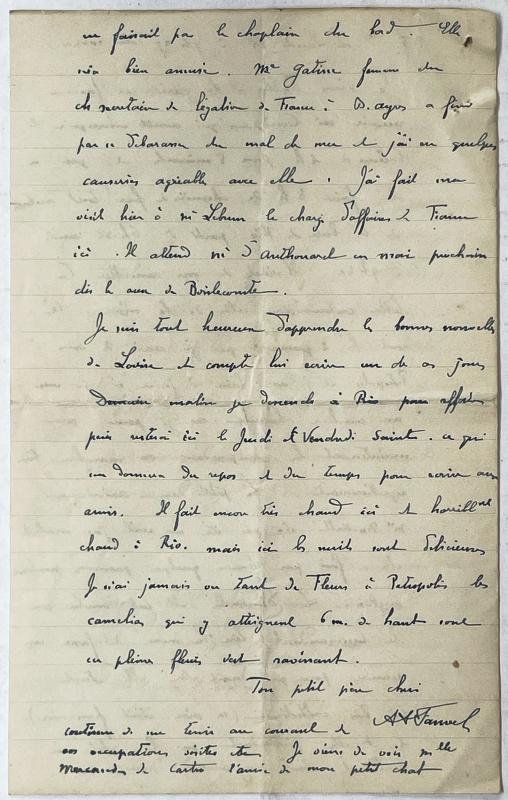 me faisait par le chaplain du bord. Elle
m'a bien amusé. Me Gatine femme du
ch secretaire de légation de France à B. ayres a fini
par se debarasser du mal de mer et j'ai eu quelques
causeries agréable avec elle. J'ai fait une
visit hier à Mr Lebrun le chargé d'affaires de France
ici. Il attend Mr d'anthouard en mai prochain
dès le de Boislecomte.
Je suis tout heureux d'apprendre les bonnes nouvelles
de Louise et compte lui ecrire un de ces jours
Demain matin je descends à Rio pour affaires
puis resterai ici le Jeudi et Vendredi Saints. ce qui
me donnera du repos et du temps pour ecrire aux
amis. Il fait encore très chaud ici et horriblmt
chaud à Rio. mais ici les nuits sont delicieuses
Je n'ai jamais vu tant de Fleurs à Petropolis les
camelias qui y atteignent 6 m. de haut sont
en pleines fleurs c'est ravissant.
Ton petit père cheri
continue de me tenir au courant de
vos occupations visites etc Je viens de voir Mlle
Mercedes de Castro l'amie de mon petit chat